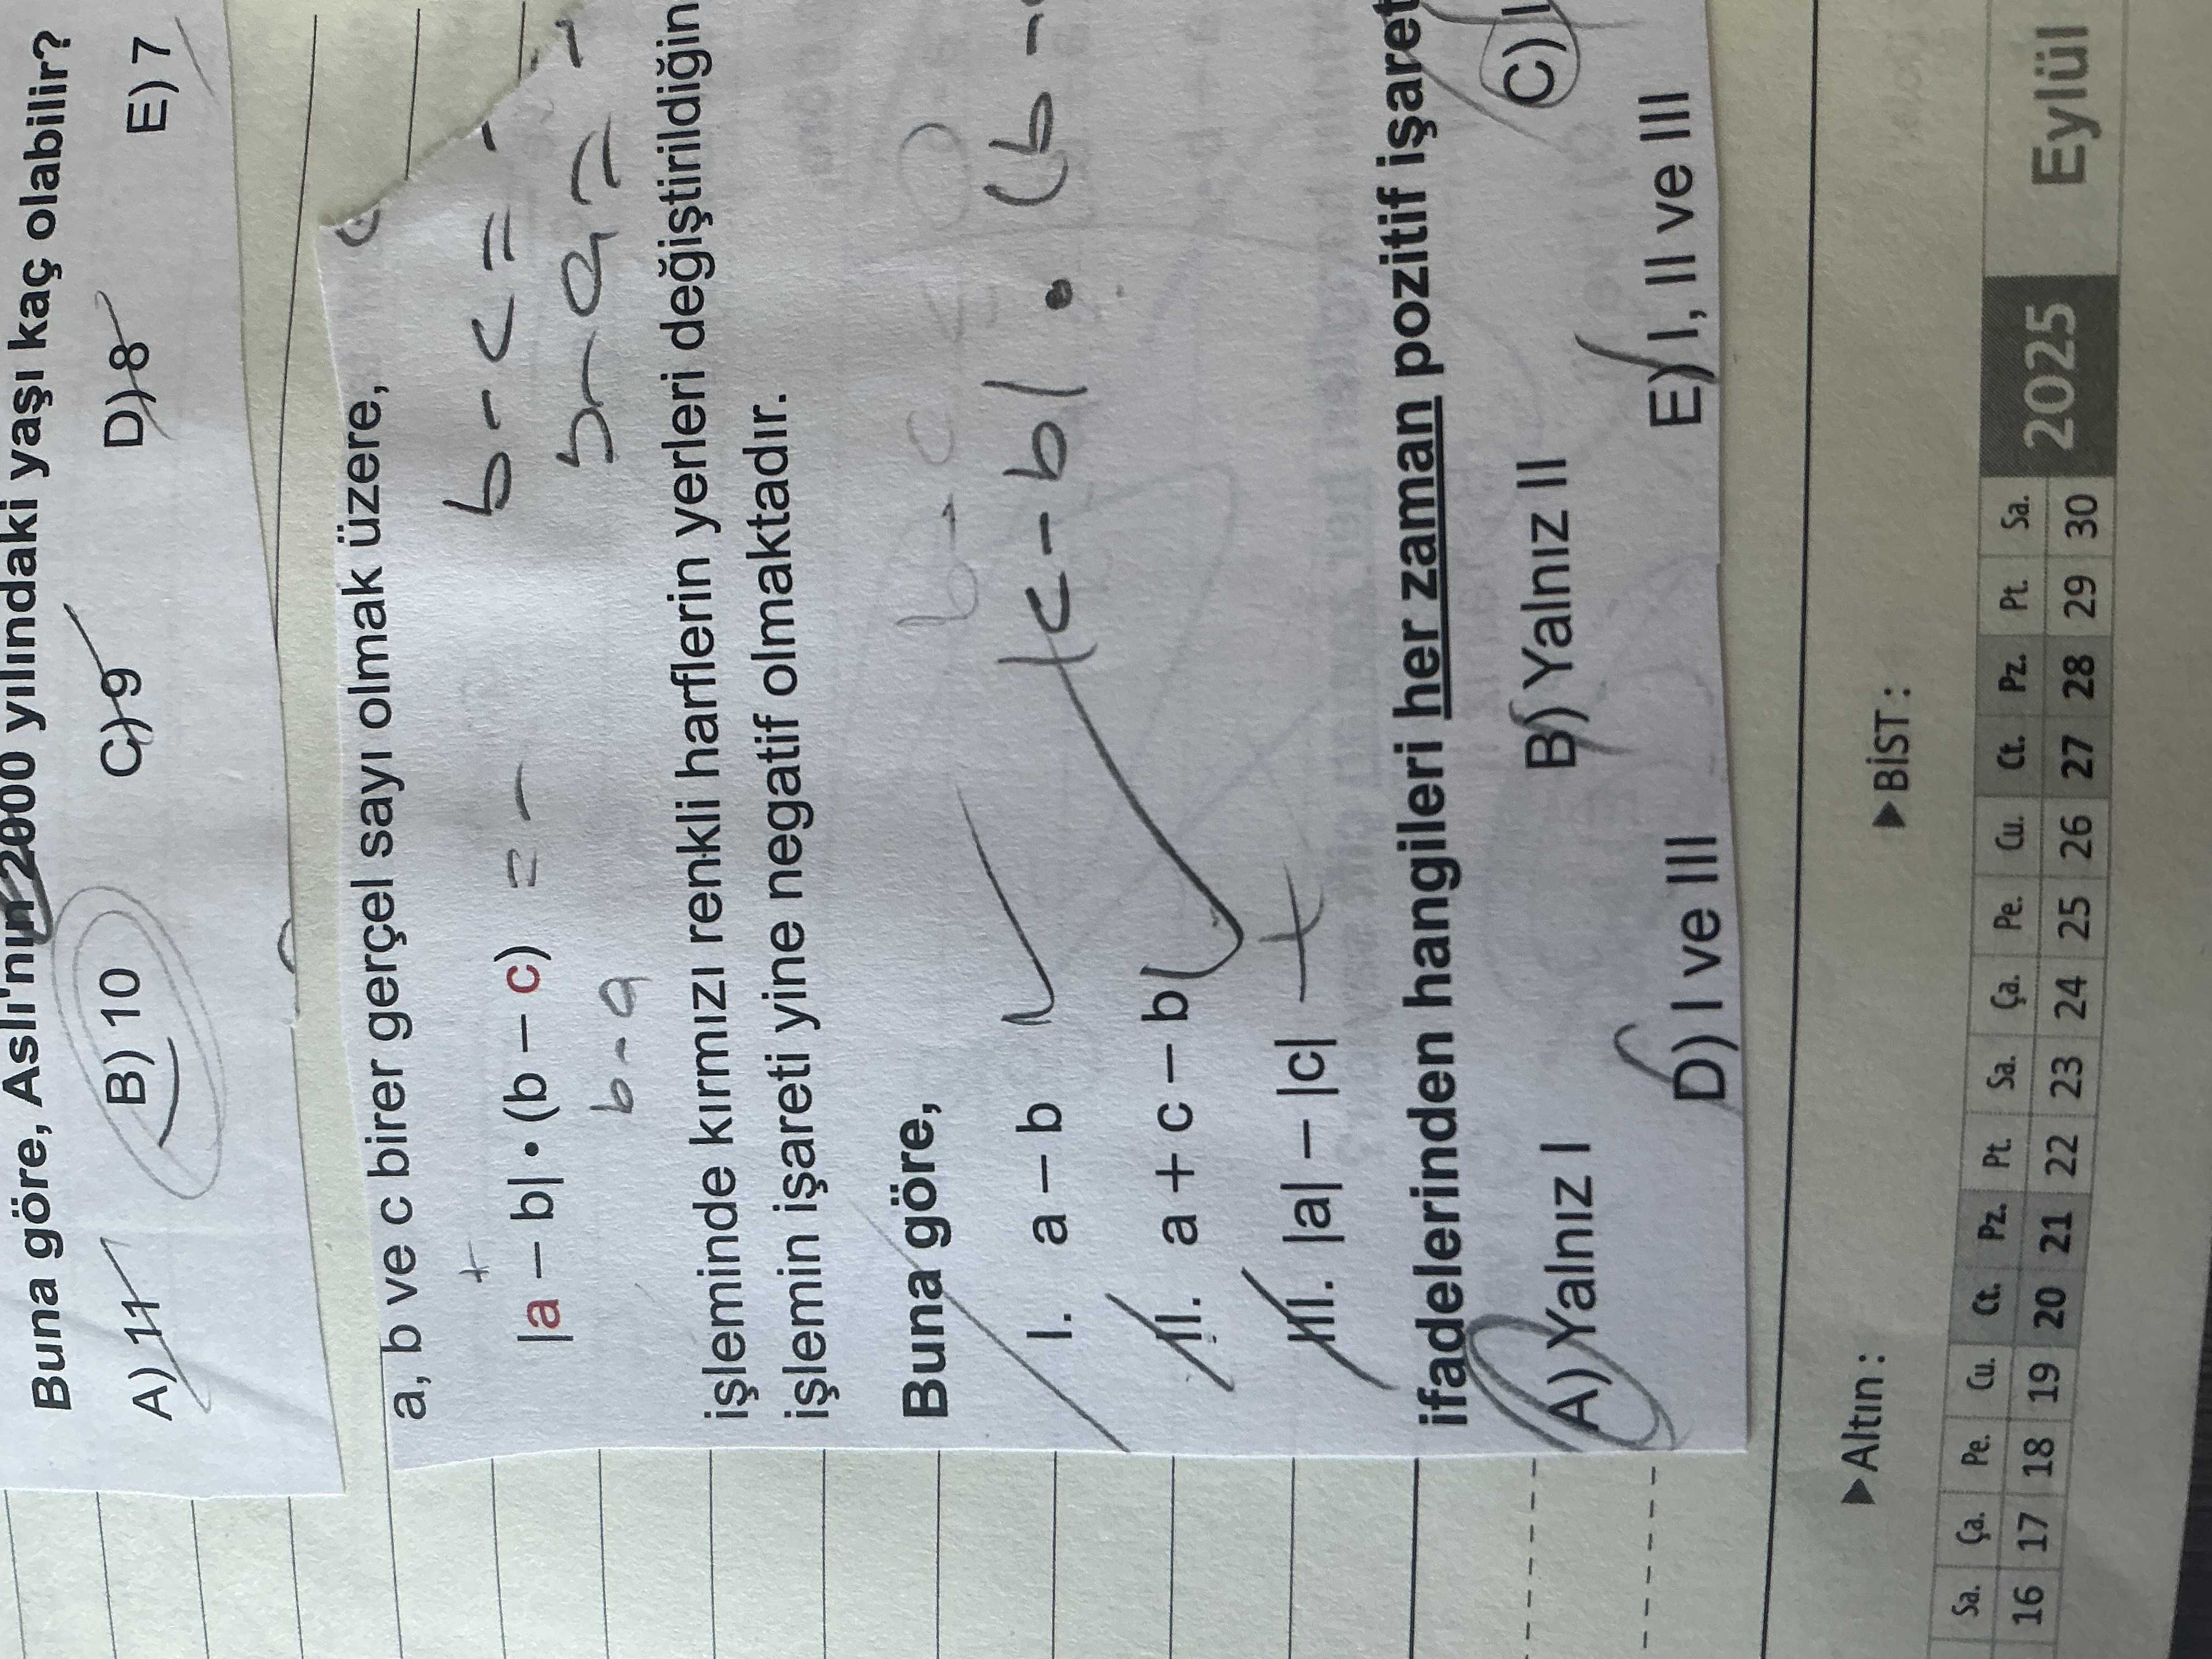 Buna göre, Aslı'nın 2000 yılındaki yaşı kaç olabilir?
A) 11 B) 10 C) 9 D) 8 E) 7
a, b ve c birer gerçel sayı olmak üzere,
|a – b| • (b – c) = -
b - c = -
b - a =
+
b - a
işleminde kırmızı renkli harflerin yerleri değiştirildiğin
işlemin işareti yine negatif olmaktadır.
Buna göre,
b - c
I. a – b
|c - b| • (b -
II. a + c – b
III. |a| – |c| +
ifadelerinden hangileri her zaman pozitif işaret
A) Yalnız I B) Yalnız II C) I
D) I ve III E) I, II ve III
▶Altın: ▶BİST:
Sa. Ça. Pe. Cu. Ct. Pz. Pt. Sa. Ça. Pe. Cu. Ct. Pz. Pt. Sa. 2025 Eylül
16 17 18 19 20 21 22 23 24 25 26 27 28 29 30